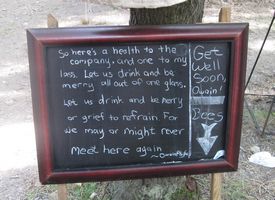 So here's a health to the
company, and one to my
lass. Let us drink and be
merry all out of one glass.
Let us drink and be merry
or grief to refrain. For
we may or might never
meet here again
Get
Well
Soon,
Owain!
Bees